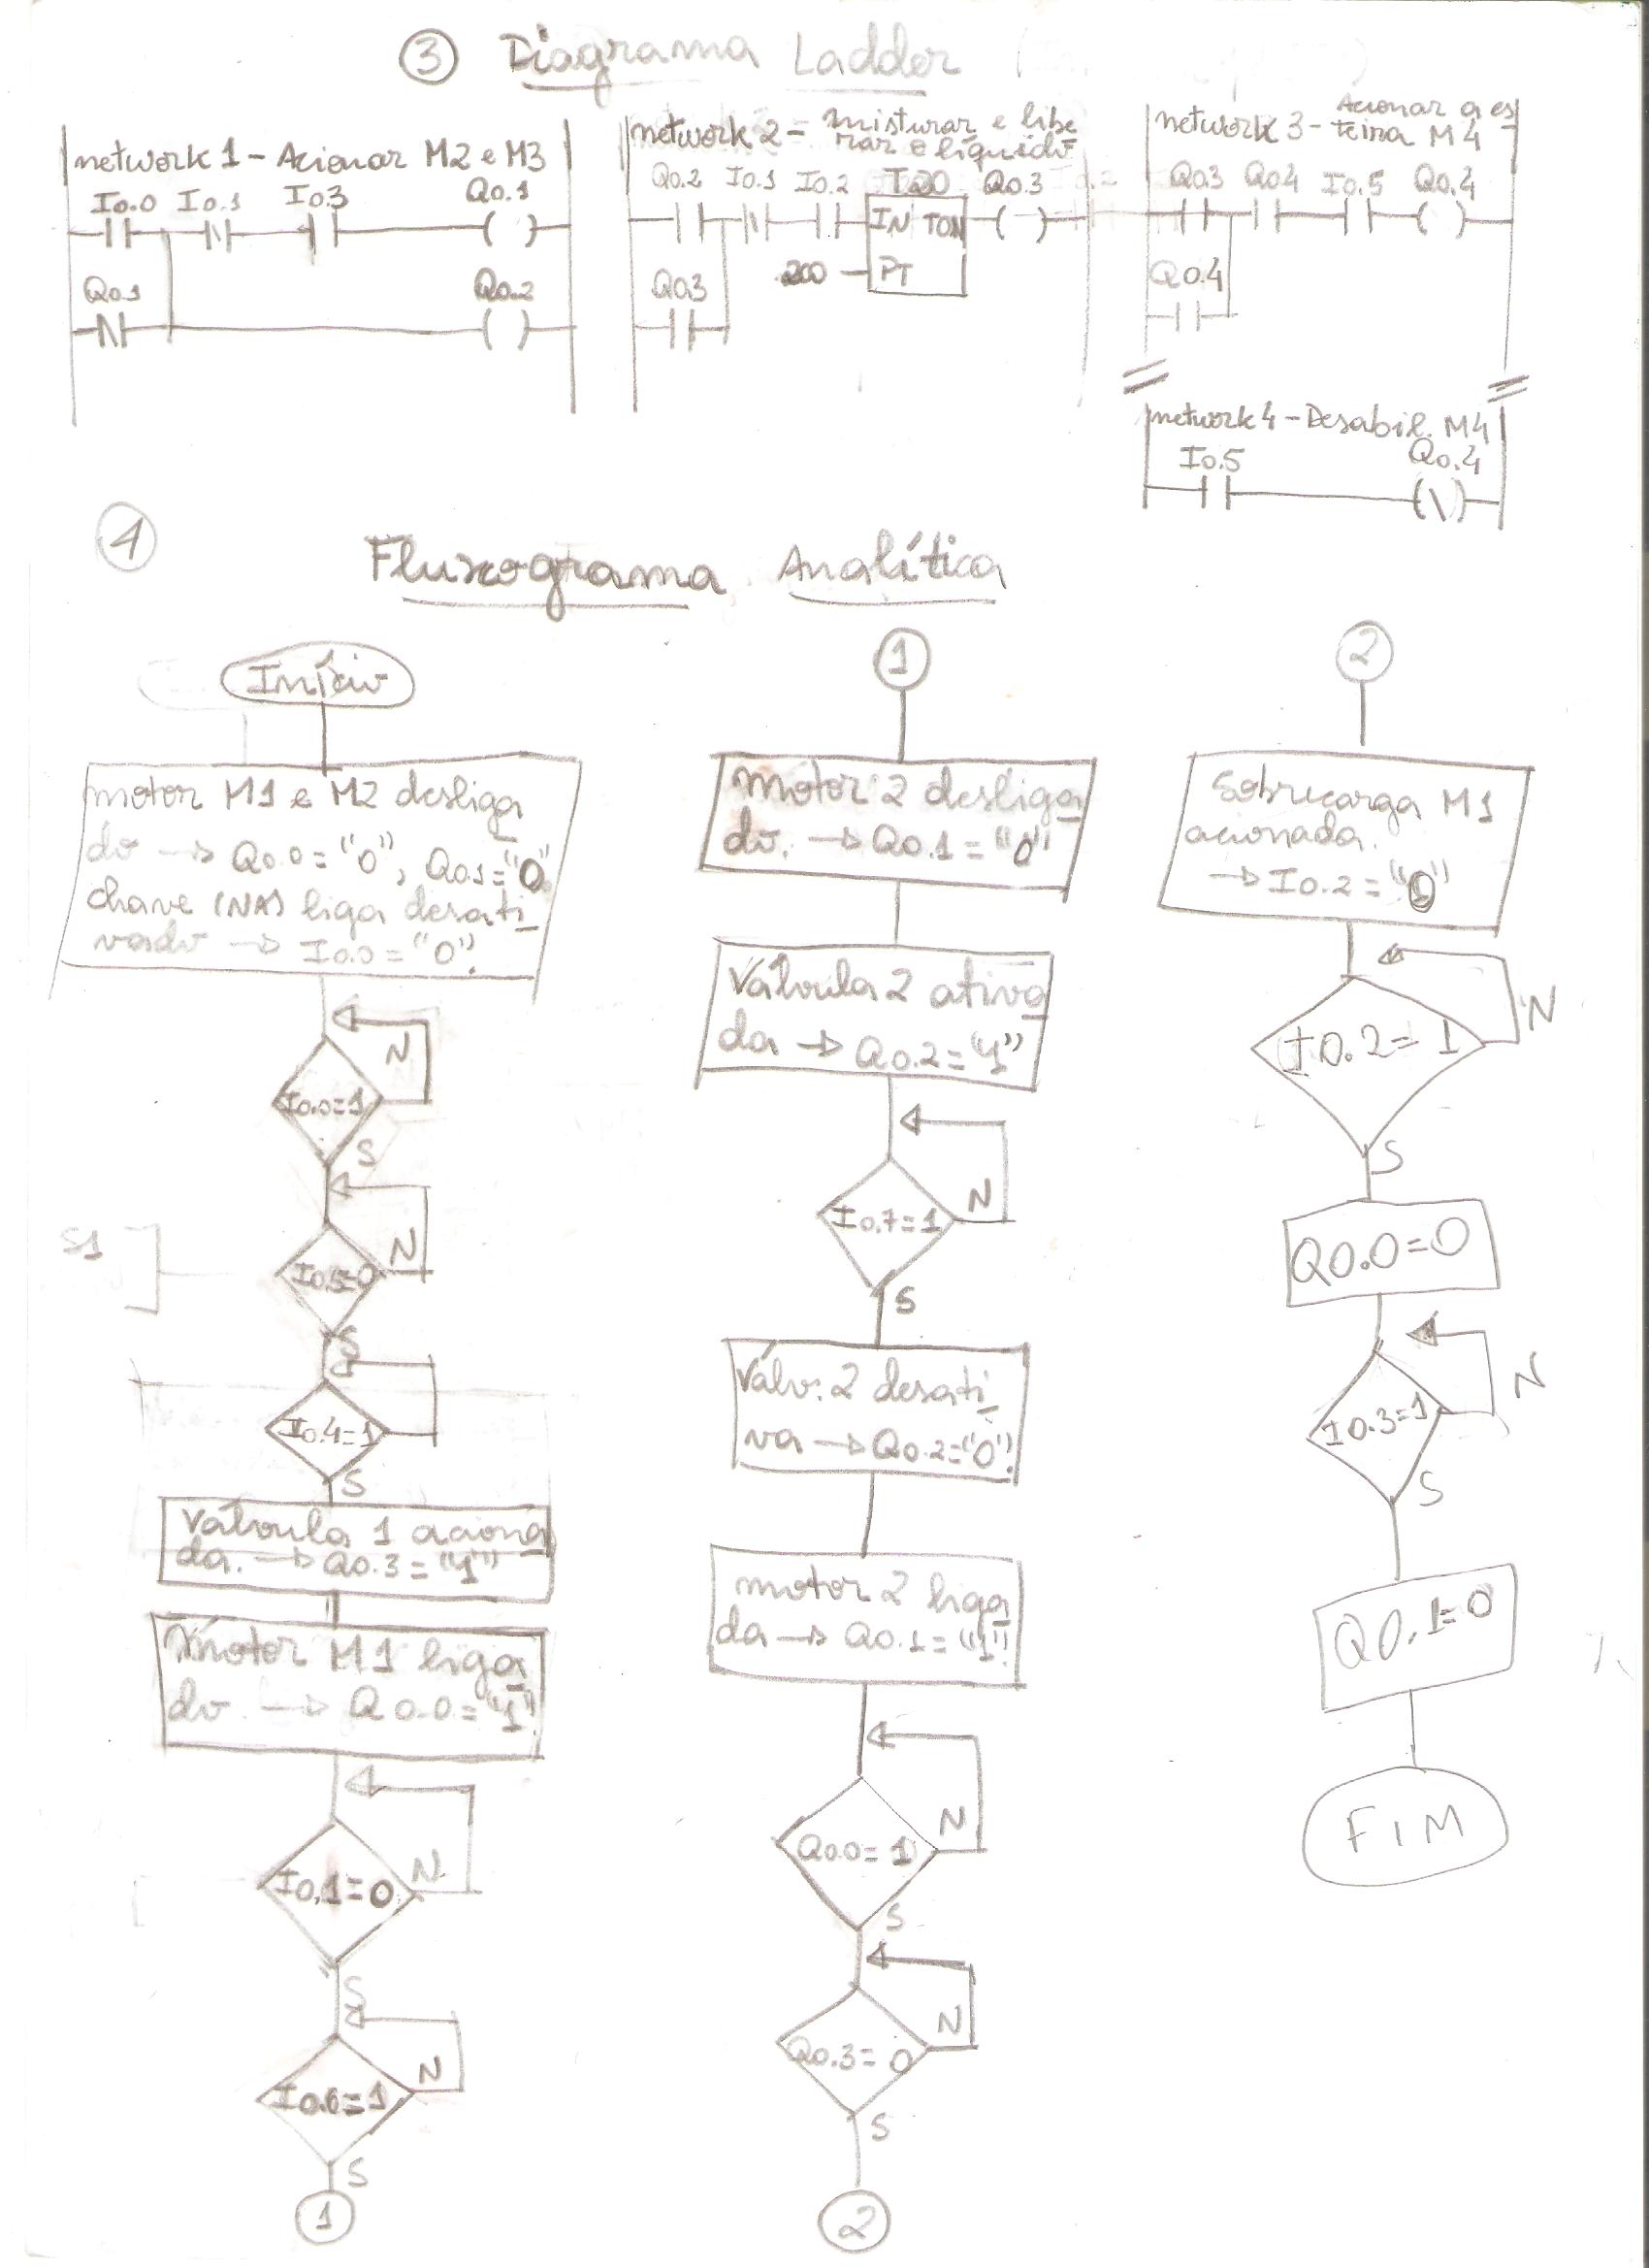 3 Diagrama Ladder
network 1 - Acionar M2 e M3
I0.0 I0.1 I0.3 Q0.1
Q0.1 Q0.2
network 2 - misturar e libe
rar o líquido
Q0.2 I0.1 I0.2 T20 Q0.3
IN TON
200 PT
Q0.3
network 3 - Acionar a es
teira M4
Q0.3 Q0.4 I0.5 Q0.4
Q0.4
network 4 - Desabil. M4
I0.5 Q0.4
Fluxograma Analítica
Início
motor M1 e M2 desliga
do → Q0.0 = "0", Q0.1 = "0
chave (NA) liga desati
vado → I0.0 = "0".
I0.0=1
N
S
S1
I0.5=0
N
S
I0.4=1
S
Válvula 1 aciona
da. → Q0.3 = "1"
Motor M1 liga
do. → Q0.0 = "1".
I0.1=0
N
S
I0.6=1
N
S
1
1
Motor 2 desliga
do. → Q0.1 = "0"
Válvula 2 ativa
da → Q0.2 = "1"
I0.7=1
N
S
Válv. 2 desati
va → Q0.2 = "0".
motor 2 liga
da → Q0.1 = "1".
Q0.0=1
N
S
Q0.3=0
N
S
2
2
Sobrecarga M1
acionada.
→ I0.2 = "0"
I0.2=1
N
S
Q0.0=0
I0.3=1
N
S
Q0.1=0
FIM